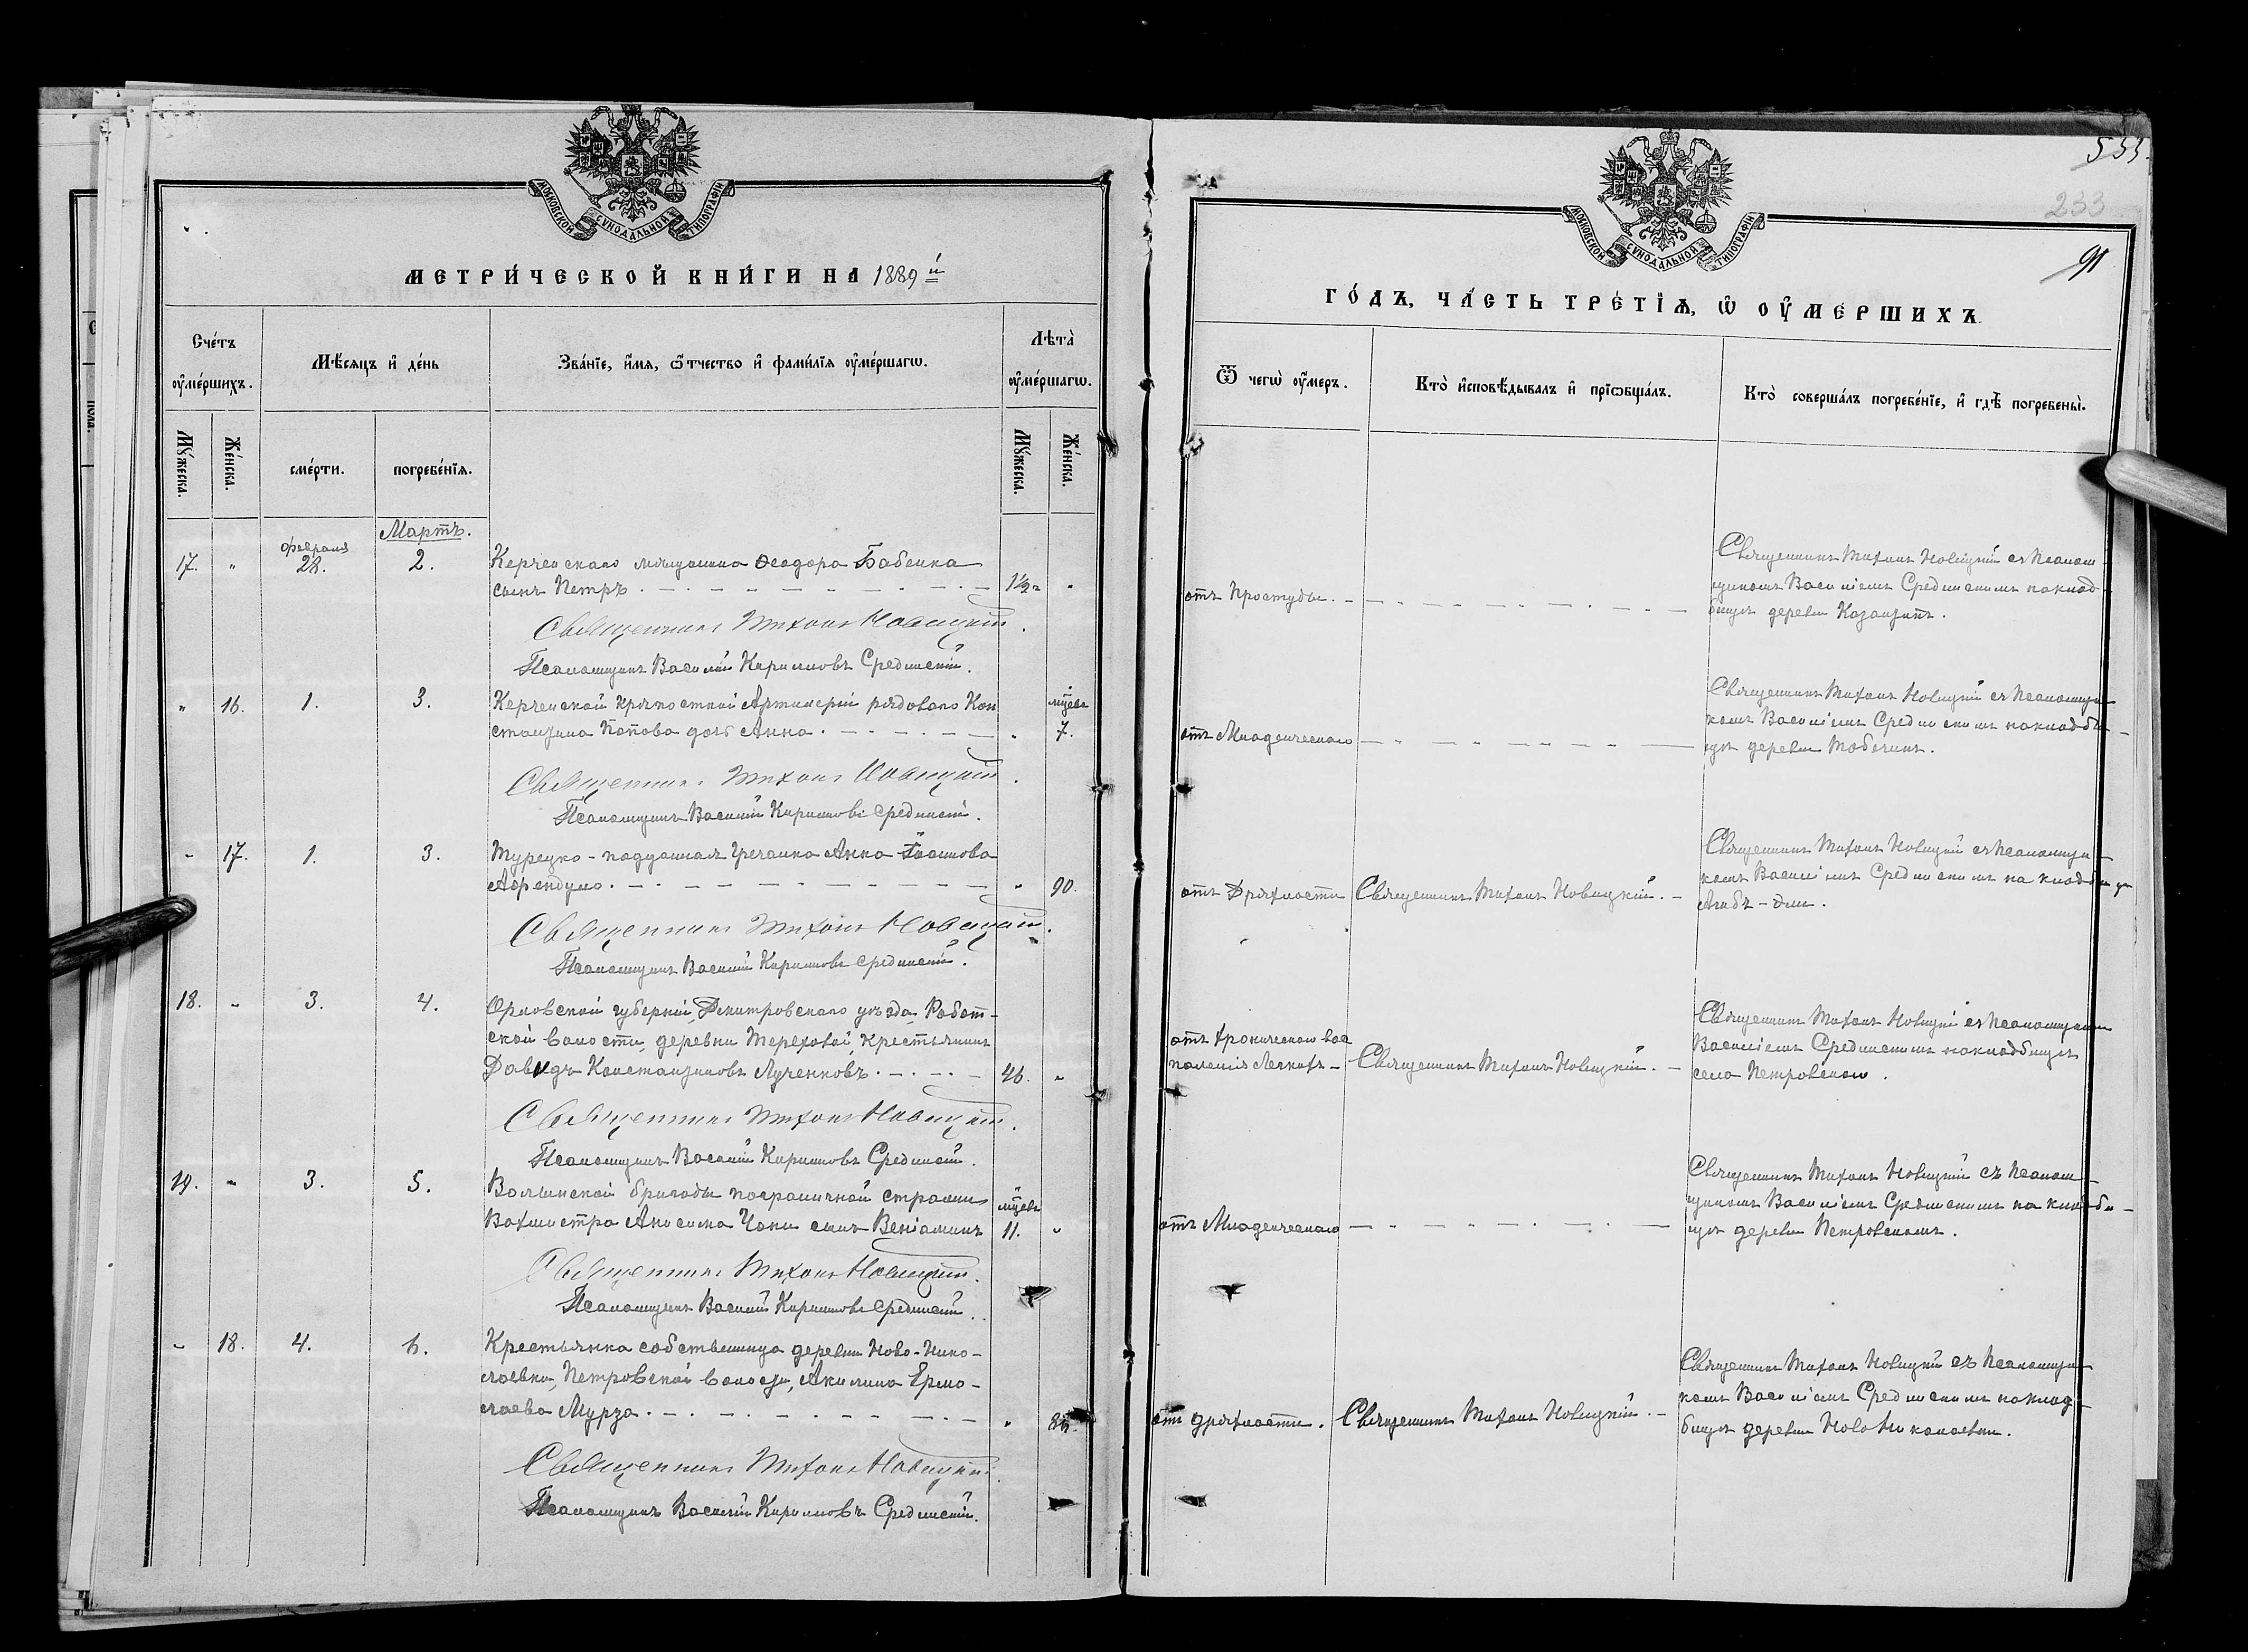 МОСКОВСКОЙ СУНОДАЛЬНОЙ ТИПОГРАФІИ
МЕТРИ́ЧЕСКОЙ КНИ́ГИ НА 1889й
Сче́тъ ᲂу҆ме́ршихъ.
Мѣ́сѧцъ и҆ де́нь
Зва́нїе, и҆́мѧ, ѻ҆́тчество и҆ фами́лїѧ ᲂу҆ме́ршагѡ.
Лѣта̀ ᲂу҆ме́ршагѡ.
Мꙋ́жеска.
Же́нска.
сме́рти.
погребе́нїѧ.
Мꙋ́жеска.
Же́нска.
Мартъ.
17. " Февраля 28. 2. Керченскаго мѣщанина Ѳеодора Бабенка
сынъ Петръ. 1½ "
Священникъ Тихонъ Новицкій.
Псаломщикъ Василій Кирилловъ Срединскій.
" 16. 1. 3. Керченской крѣпостной Артилеріи рядоваго Кон
стантина Попова дочь Анна. " мѣсяц. 7.
Священникъ Тихонъ Новицкій.
Псаломщикъ Василій Кирилловъ Срединскій.
" 17. 1. 3. Турецко-подданная Гречанка Анна Іоаннова
" 90.
Священникъ Тихонъ Новицкій.
Псаломщикъ Василій Кирилловъ Срединскій.
18. " 3. 4. Орловской губерніи, Дмитровскаго уѣзда,
ской волости, деревни Тереховой, Крестьянинъ
Давидъ Константиновъ Лученковъ. 46. "
Священникъ Тихонъ Новицкій.
Псаломщикъ Василій Кирилловъ Срединскій.
19. " 3. 5. Волынской бригады пограничной стражи
Вахмистра Анисима Чони сынъ Веніаминъ мѣсяц. 11. "
Священникъ Тихонъ Новицкій.
Псаломщикъ Василій Кирилловъ Срединскій.
" 18. 4. 6. Крестьянка собственница деревни Ново-Нико-
лаевки, Петровской волости, Акилина Ермо-
лаева Мурза. "
Священникъ Тихонъ Новицкій.
Псаломщикъ Василій Кирилловъ Срединскій.
233
91
МОСКОВСКОЙ СУНОДАЛЬНОЙ ТИПОГРАФІИ
ГО́ДЪ, ЧА́СТЬ ТРЕ́ТЇѦ, Ѡ҆ ОУ҆МЕ́РШИХЪ.
Ѿ чегѡ̀ ᲂу҆́меръ.
Кто̀ и҆сповѣ́дывалъ и҆ прїѡбща́лъ.
Кто̀ соверша́лъ погребе́нїе, и҆ гдѣ̀ погребены̀.
отъ Простуды.
Священникъ Тихонъ Новицкій съ Псалом-
щикомъ Василіемъ Срединскимъ на клад-
бищѣ деревни Казантипъ.
отъ Младенческаго
Священникъ Тихонъ Новицкій съ Псаломщи-
комъ Василіемъ Срединскимъ на кладби-
щѣ деревни
отъ Дряхлости Священникъ Тихонъ Новицкій.
Священникъ Тихонъ Новицкій съ Псаломщи-
комъ Василіемъ Срединскимъ на кладбищѣ
отъ Хроническаго вос
паленія Легкихъ Священникъ Тихонъ Новицкій.
Священникъ Тихонъ Новицкій съ Псаломщикомъ
Василіемъ Срединскимъ на кладбищѣ
села Петровскаго.
отъ Младенческаго
Священникъ Тихонъ Новицкій съ Псалом-
щикомъ Василіемъ Срединскимъ на кладби-
щѣ деревни Петровскомъ.
отъ дряхлости. Священникъ Тихонъ Новицкій.
Священникъ Тихонъ Новицкій съ Псаломщи-
комъ Василіемъ Срединскимъ на клад-
бищѣ деревни Ново Николаевки.